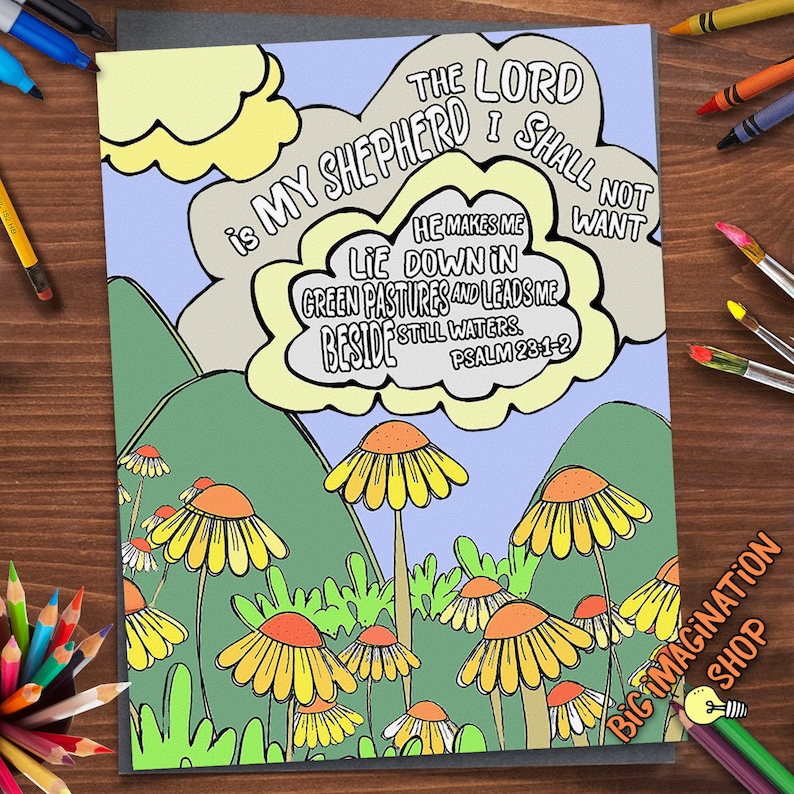 THE LORD
is MY SHEPHERD I SHALL NOT
WANT
HE MAKES ME
LiE DOWN iN
GREEN PASTURES AND LEADS ME
BESIDE STILL WATERS.
PSALM 23:1-2
BiG iMAGiNATiON
SHOP